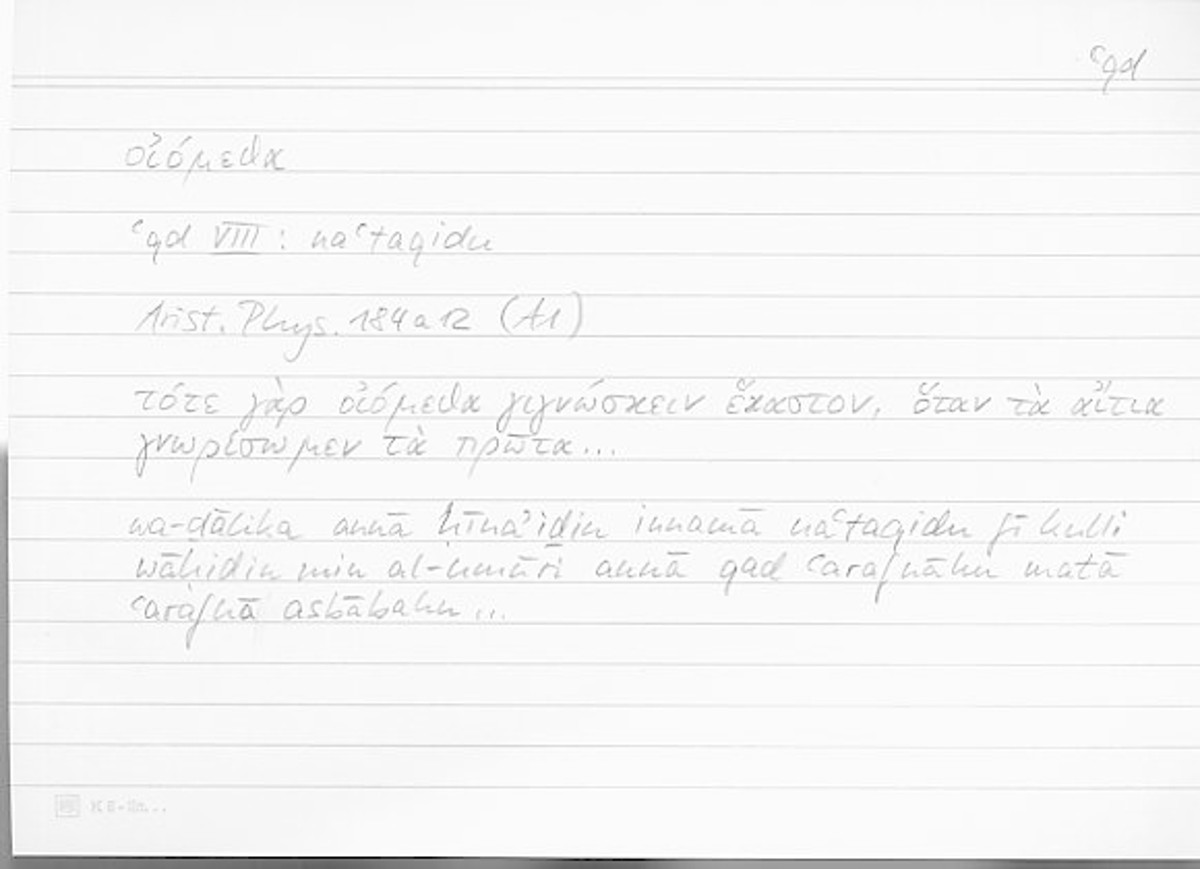 ʿqd
οἰόμεθα
ʿqd VIII : naʿtaqidu
Arist. Phys. 184 a 12 (A1)
τότε γὰρ οἰόμεθα γιγνώσκειν ἕκαστον, ὅταν τὰ αἴτια
γνωρίσωμεν τὰ πρῶτα...
wa-ḏālika annā ḥīnaʾiḏin innamā naʿtaqidu fī kulli
wāḥidin min al-umūri annā qad ʿarafnāhu matā
ʿarafnā asbābahu...